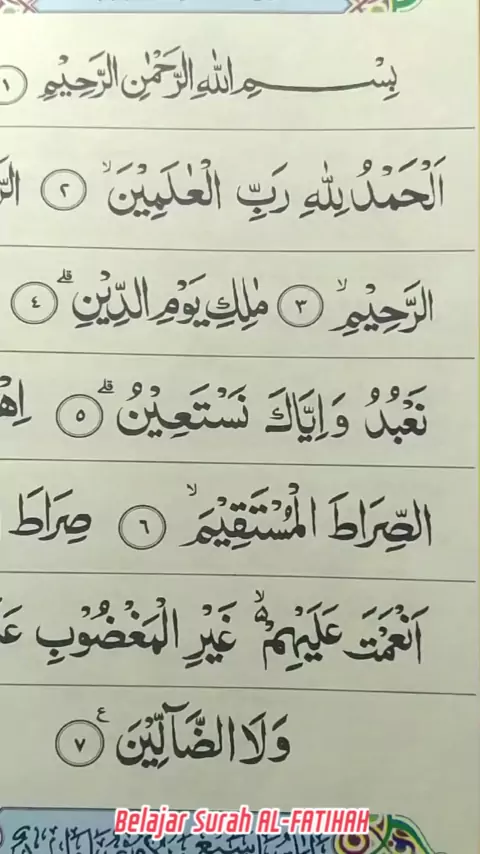 بِسْمِ اللهِ الرَّحْمٰنِ الرَّحِيْمِ ١
اَلْحَمْدُ لِلهِ رَبِّ الْعٰلَمِيْنَۙ ٢
الرَّحِيْمِۙ ٣ مٰلِكِ يَوْمِ الدِّيْنِۗ ٤
نَعْبُدُ وَاِيَّاكَ نَسْتَعِيْنُۗ ٥
الصِّرَاطَ الْمُسْتَقِيْمَۙ ٦ صِرَاطَ
اَنْعَمْتَ عَلَيْهِمْۙ غَيْرِ الْمَغْضُوْبِ
وَلَا الضَّاۤلِّيْنَࣖ ٧
Belajar Surah AL-FATIHAH